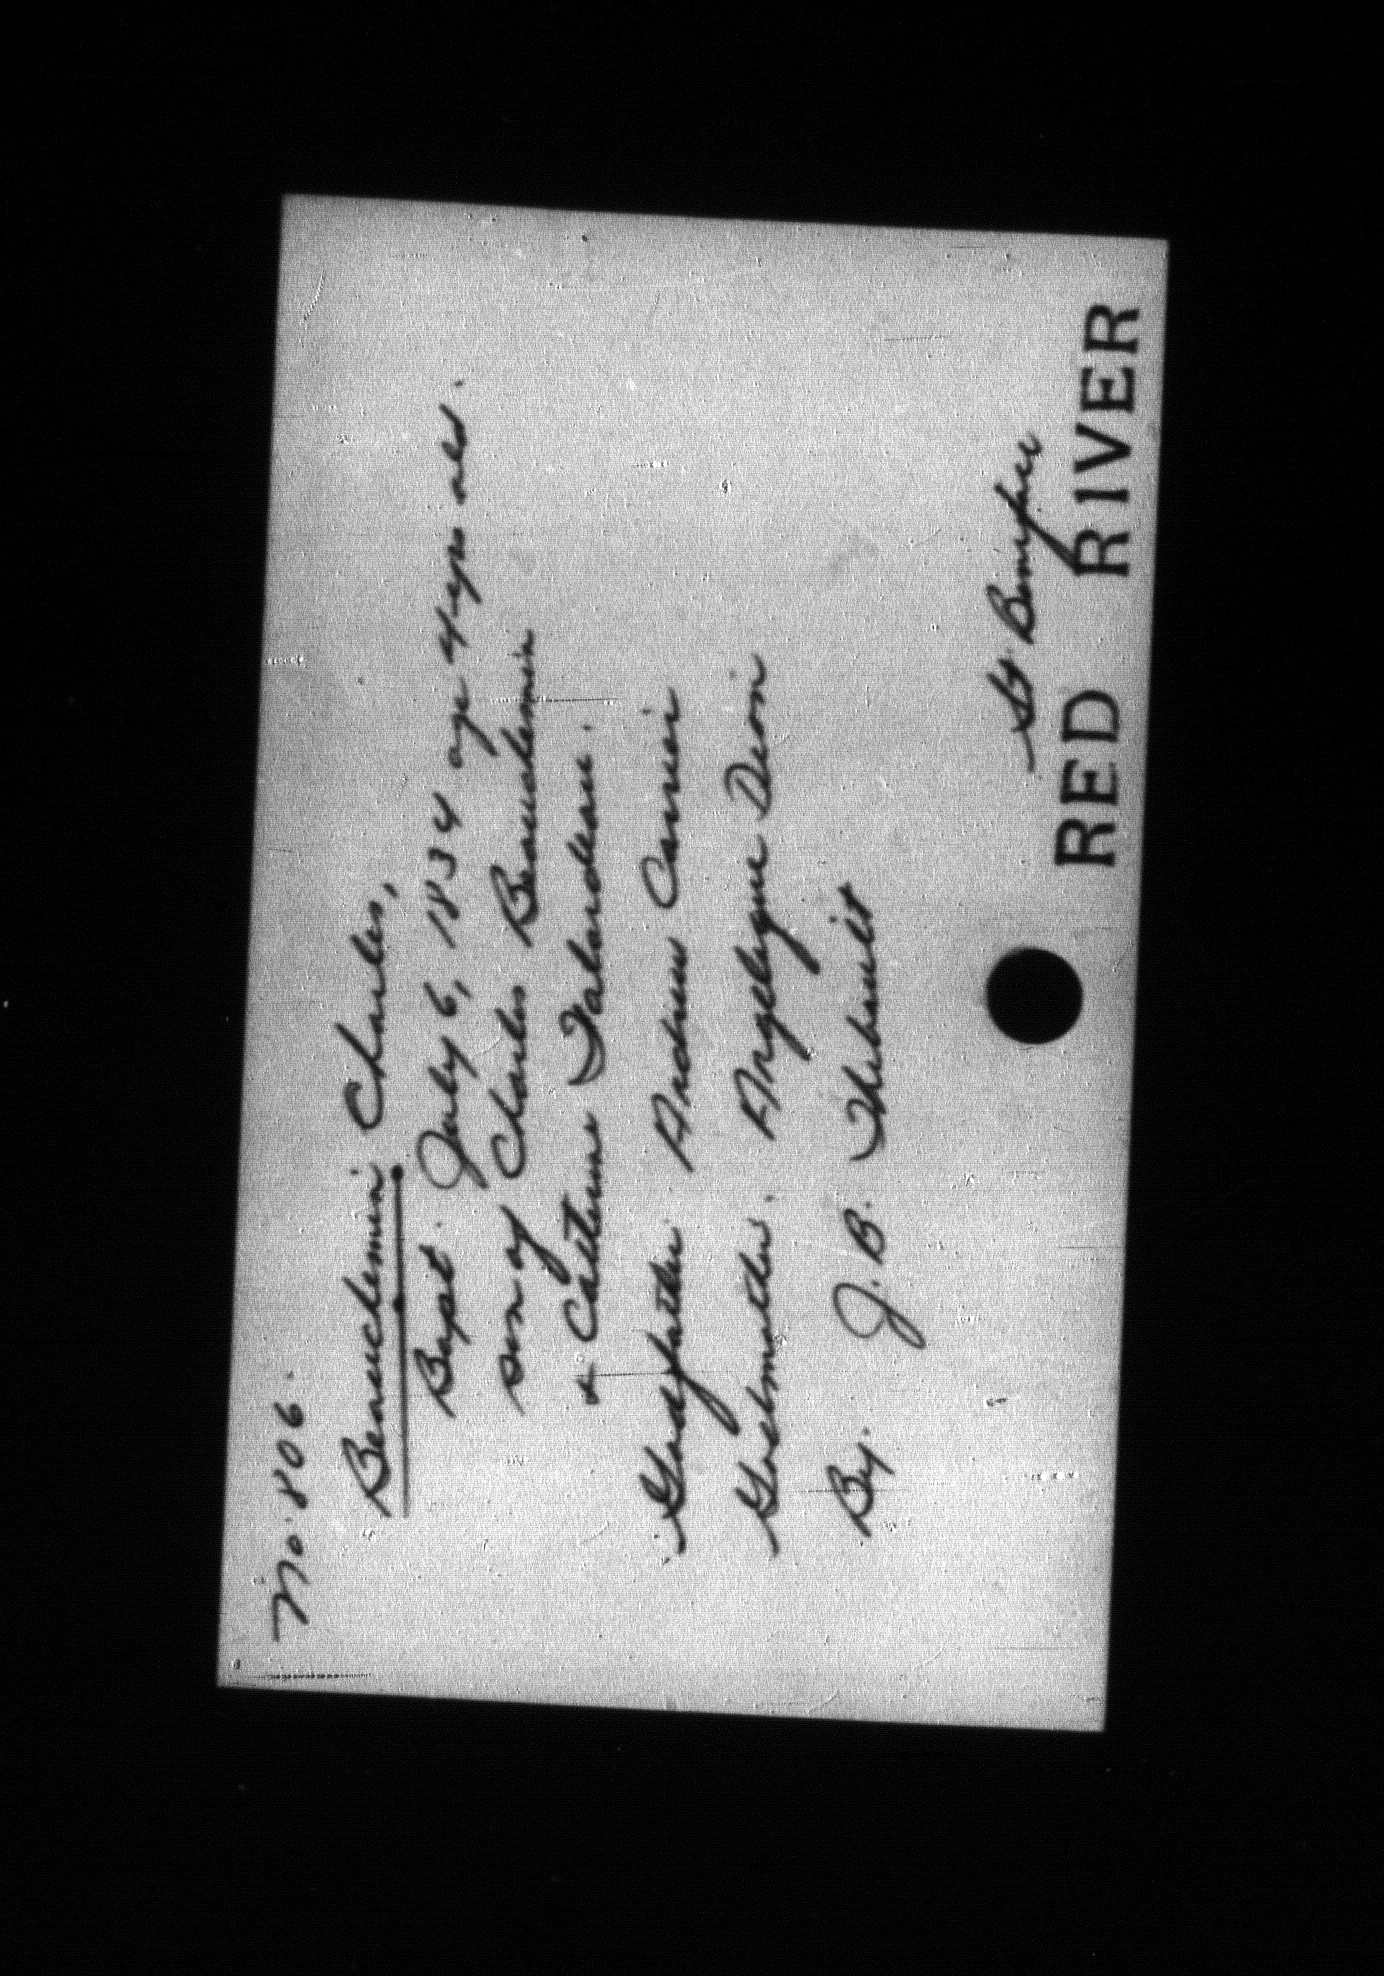 No. 806.
Beauchemin Charles,
Bapt. July 6, 1834 age 4 yrs old.
son of Charles Beauchemin
& Catherine Delardeau.
Godfather Andrew Carrier
Godmother. Angelique Dion
By. J. B. Thibault
St. Boniface
RED RIVER